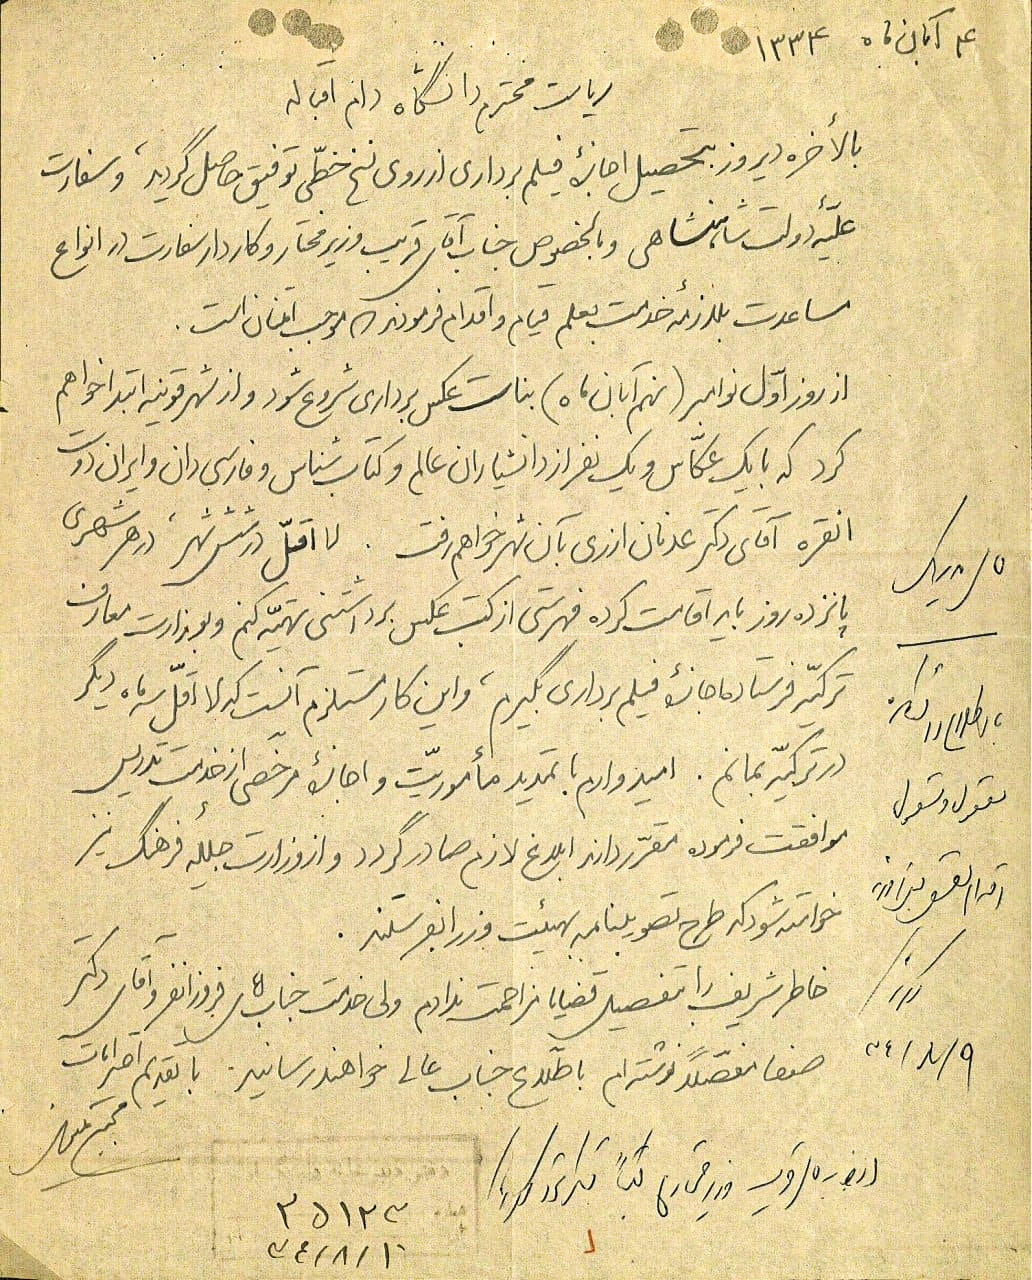 ۴ آبان ماه ۱۳۳۴
ریاست محترم دانشگاه دام اقباله
بالأخره دیروز بتحصیل اجازۀ فیلم برداری از روی نسخ خطّی توفیق حاصل گردید، و سفارت
علیّۀ دولت شاهنشاهی و بالخصوص جناب آقای قریب وزیر مختار و کاردار سفارت در انواع
مساعدت بلازمۀ خدمت بعلم قیام و اقدام فرمودند که موجب امتنان است.
از روز اوّل نوامبر (نهم آبان ماه) بناست عکس برداری شروع شود و از شهر قونیه ابتدا خواهم
کرد که با یک عکّاس و یک نفر از دانشیاران عالم و کتاب شناس و فارسی دان و ایران دوست
انقره آقای دکتر عدنان ارزی بآن شهر خواهم رفت. لااقلّ در شش شهر، در هر شهری
پانزده روز باید اقامت کرده فهرستی از کتب عکس برداشتنی تهیّه کنم و بوزارت معارف
ترکیّه فرستاده اجازۀ فیلم برداری بگیرم، و این کار مستلزم آنست که لااقلّ سه ماه دیگر
در ترکیّه بمانم. امیدوارم با تمدید مأموریّت و اجازۀ مرخّصی از خدمت تدریس
موافقت فرموده مقرّر دارند ابلاغ لازم صادر گردد و از وزارت جلیلۀ فرهنگ نیز
خواسته شود که طرح تصویبنامه بهیئت وزرا بفرستند.
خاطر شریف را بتفصیل قضایا مزاحمت ندادم ولی خدمت جناب آقای فروزانفر و آقای دکتر
صفا مفصّلاً نوشته‌ام باطّلاع جناب عالی خواهند رسانید. با تقدیم احترامات
مجتبی مینوی
باطلاع دانشکده
معقول و منقول
۳۴/۸/۹
از آقای قریب وزیر مختار کتباً تشکر شود
۳۵۱۲۳
۳۴/۸/۱۰